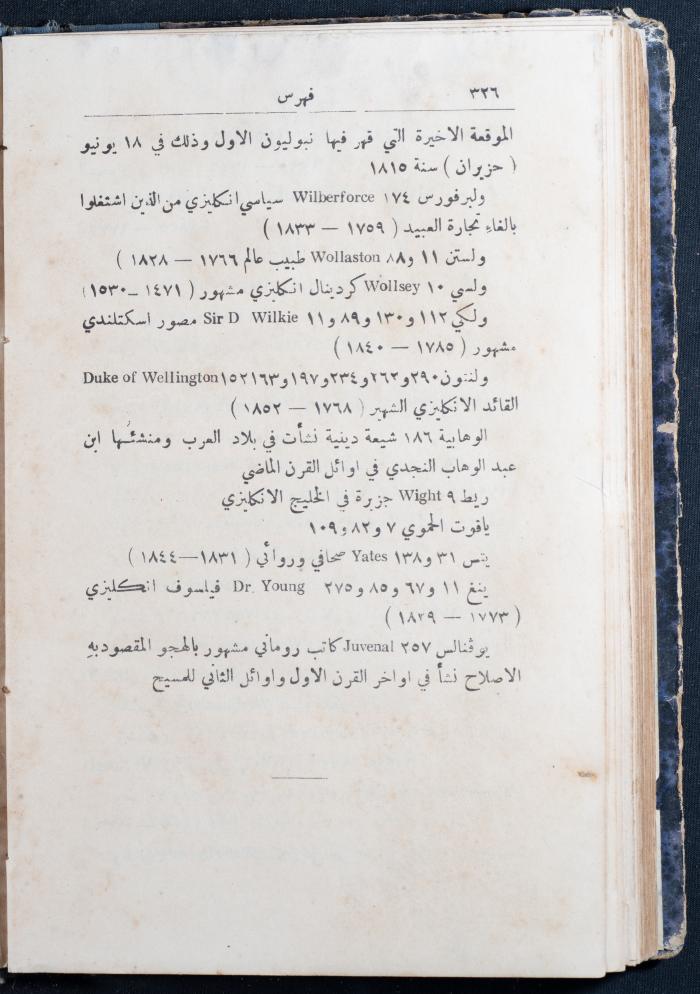 ٣٢٦ فهرس
الموقعة الاخيرة التي قهر فيها نبوليون الاول وذلك في ١٨ يونيو
( حزيران ) سنة ١٨١٥
ولبرفورس ١٧٤ Wilberforce سياسي انكليزي من الذين اشتغلوا
بالغاء تجارة العبيد ( ١٧٥٩ — ١٨٣٣ )
ولستن ١١ و٨٨ Wollaston طبيب عالم ١٧٦٦ — ١٨٢٨ )
ولسي ١٠ Wollsey كردينال انكليزي مشهور ( ١٤٧١ – ١٥٣٠)
ولكي ١١٢ و١٣٠ و٨٩ و١١ Sir D Wilkie مصور اسكتلندي
مشهور ( ١٧٨٥ — ١٨٤٠ )
ولنتون ٢٩٠ و٢٦٢ و٢٣٤ و١٩٧ و١٦٣ ١٥٢ Duke of Wellington
القائد الانكليزي الشهير ( ١٧٦٨ — ١٨٥٢ )
الوهابية ١٨٦ شيعة دينية نشأت في بلاد العرب ومنشئها ابن
عبد الوهاب النجدي في اوائل القرن الماضي
ريط ٩ Wight جزيرة في الخليج الانكليزي
ياقوت الحموي ٧ و٨٢ و١٠٩
يتس ٣١ و١٣٨ Yates صحافي وروائي ( ١٨٣١—١٨٤٤ )
ينغ ١١ و٦٧ و٨٥ و٢٧٥ Dr. Young فيلسوف انكليزي
( ١٧٧٣ — ١٨٢٩ )
يوڤنالس ٢٥٧ Juvenal كاتب روماني مشهور بالهجو المقصود به
الاصلاح نشأ في اواخر القرن الاول واوائل الثاني للمسيح